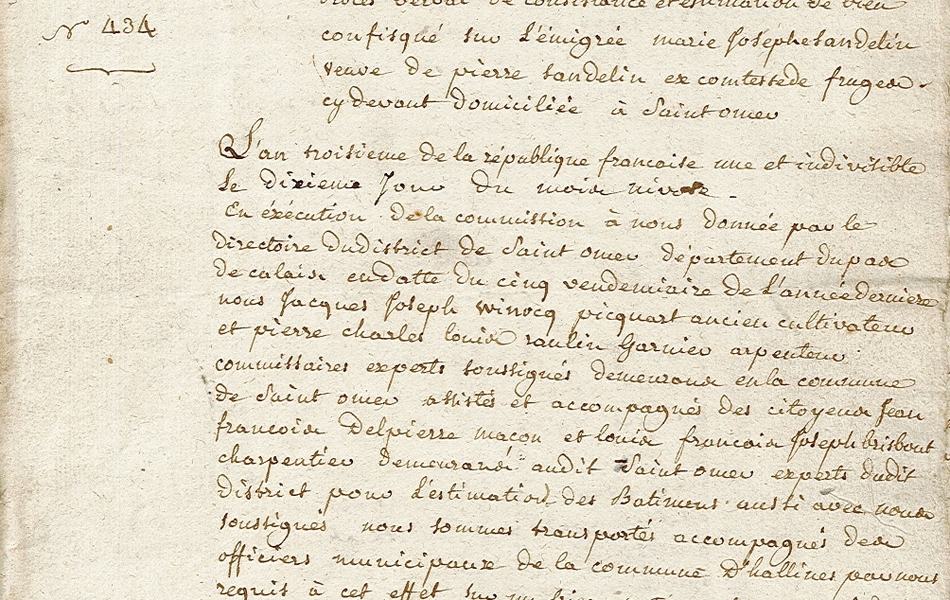 procès verbal de consistance et estimation de bien
N° 434
confisqué sur l'émigrée marie Josephe Sandelin
veuve de pierre sandelin ex comtesse de fruges
cy devant domiciliée à Saint omer
L'an troisieme de la république francaise une et indivisible
le dixieme Jour du mois nivose
En éxécution de la commission à nous donnée par le
directoire du district de Saint omer département du pas
de calais en datte du cinq vendemiaire de l'année derniere
nous Jacques Joseph winocq picquart ancien cultivateur
et pierre charles louis raulin Garnier arpenteur
commissaires experts soussignés demeurans en la commune
de Saint omer assistés et accompagnés des citoyens Jean
francois Delpierre macon et louis francois Joseph brisbout
charpentier demeurans audit Saint omer experts dudit
district pour l'estimation des Batimens aussi avec nous
soussignés nous sommes transportés accompagnés des
officiers municipaux de la commune D'hallines par nous
requis à cet effet sur un bien